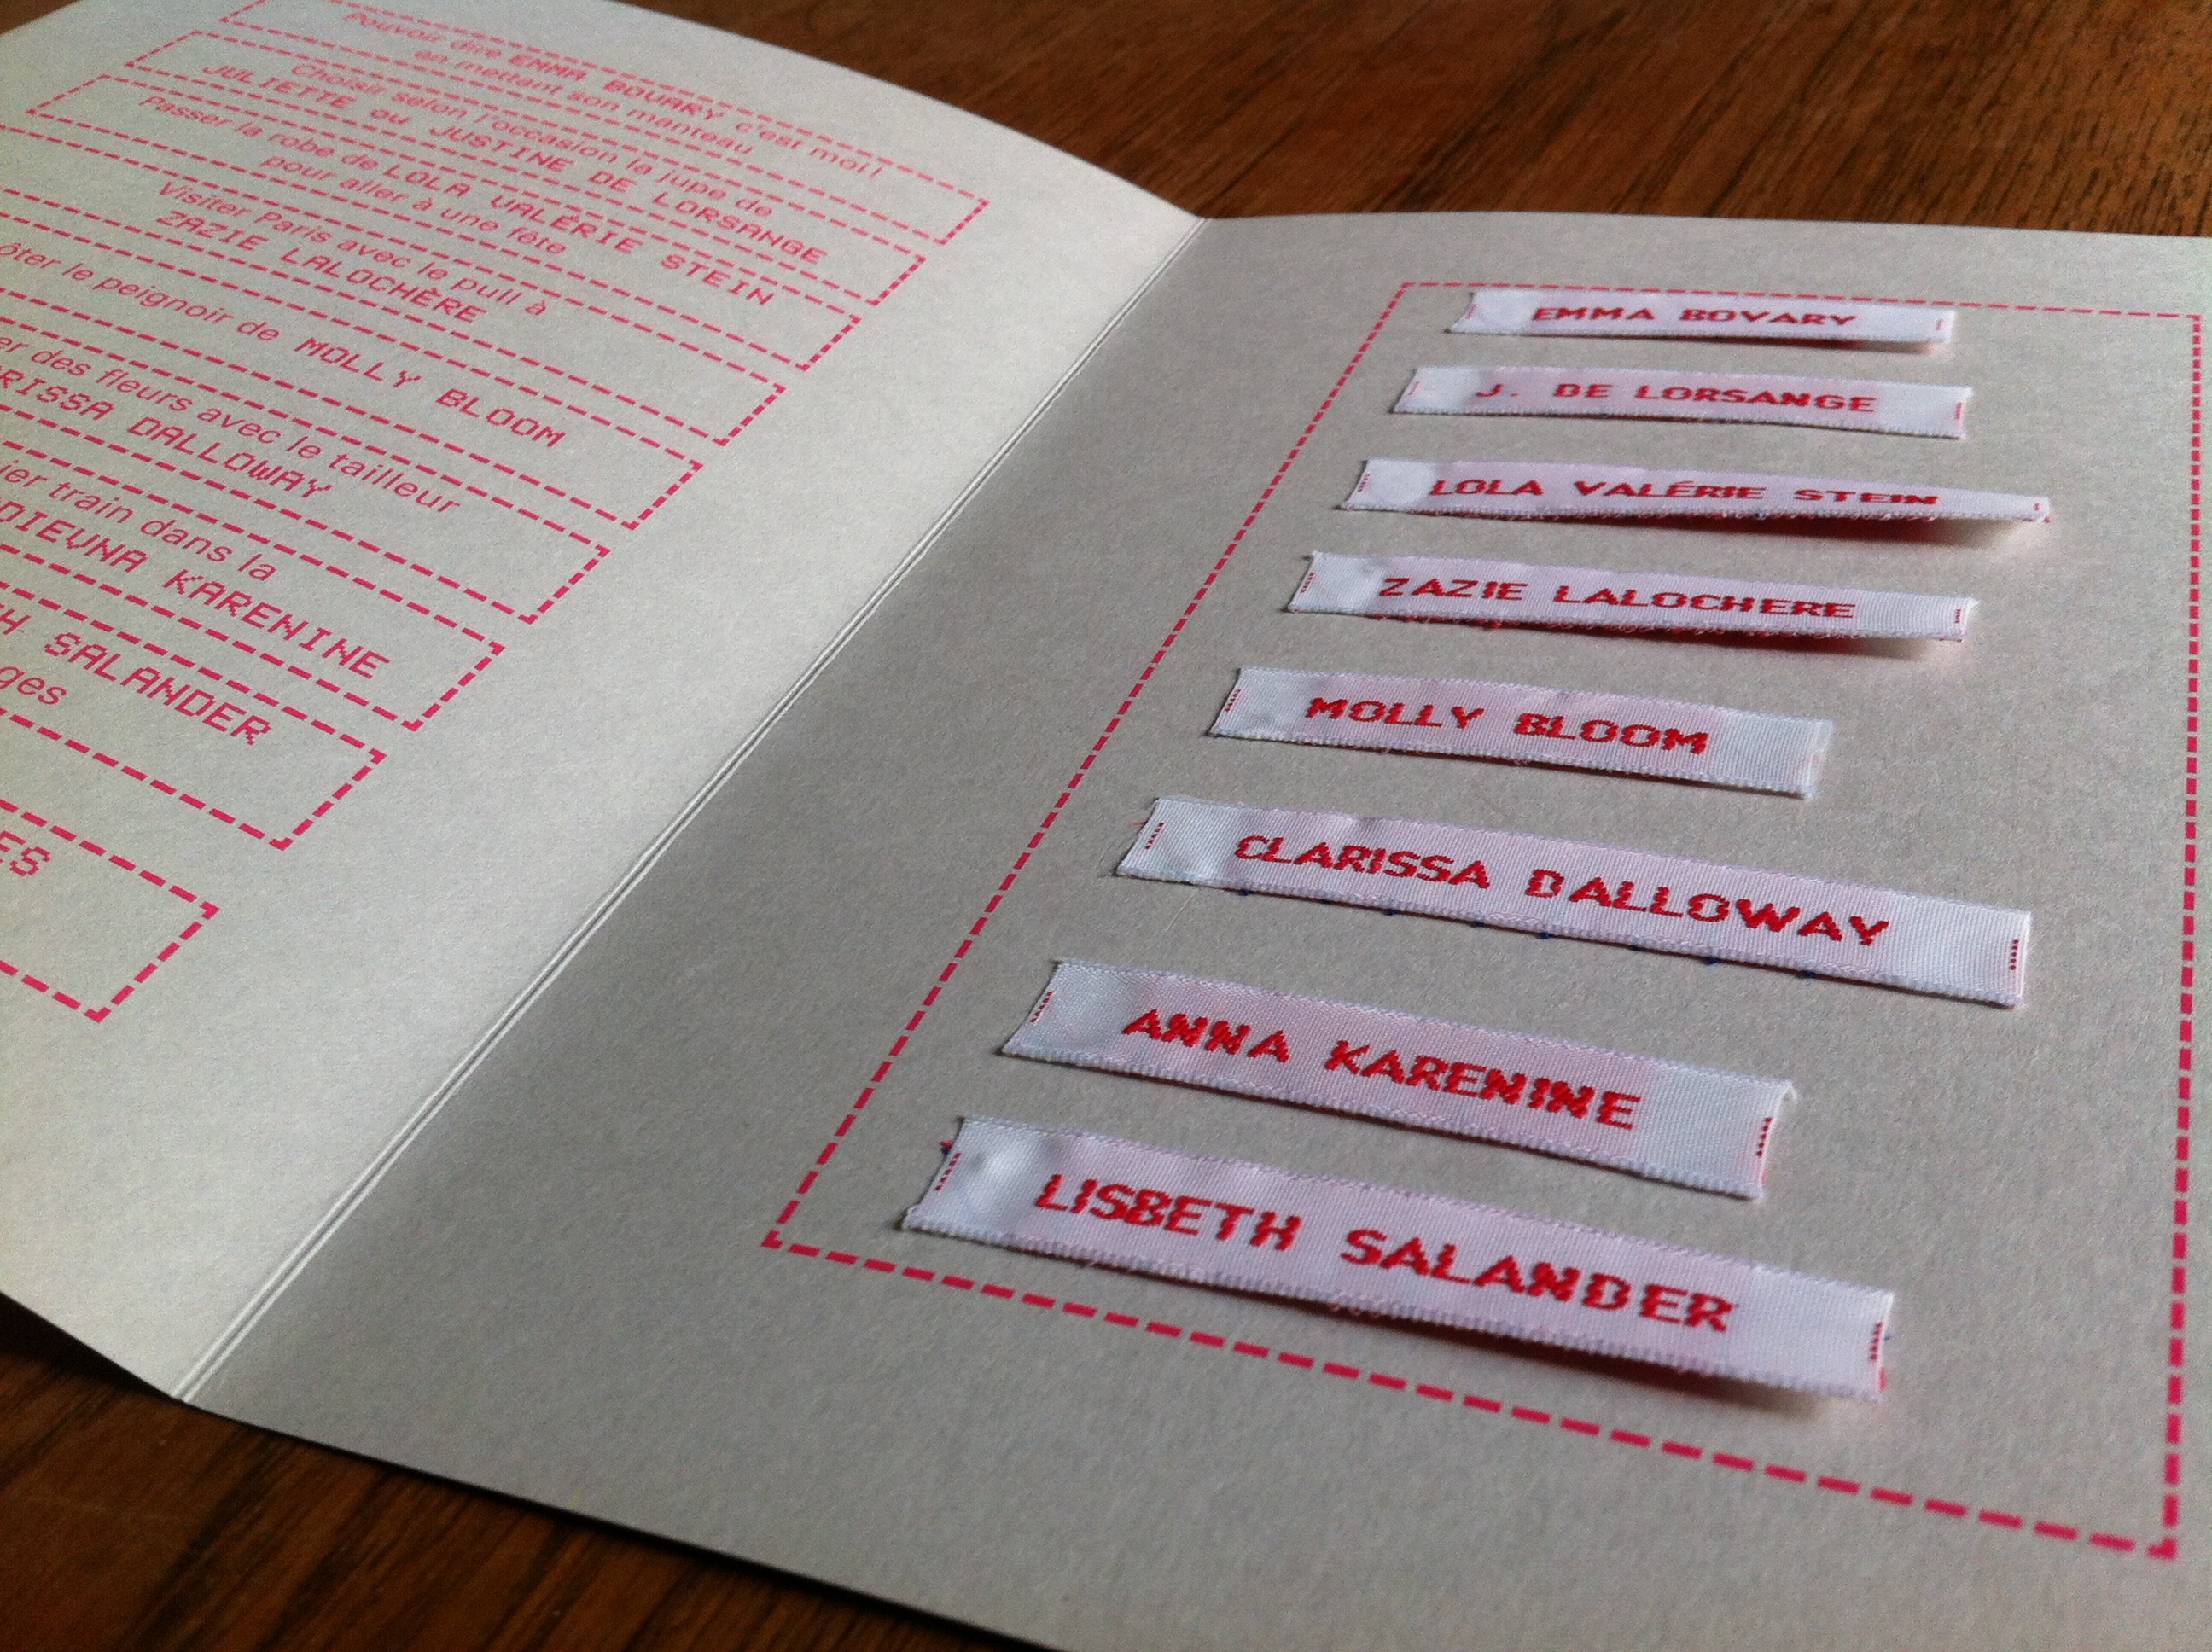 Pouvoir dire EMMA BOVARY c'est moi !
en mettant son manteau
Choisir selon l'occasion la jupe de
JULIETTE ou JUSTINE DE LORSANGE
Passer la robe de LOLA VALÉRIE STEIN
pour aller à une fête
Visiter Paris avec le pull à
ZAZIE LALOCHÈRE
ôter le peignoir de MOLLY BLOOM
er des fleurs avec le tailleur
RISSA DALLOWAY
ier train dans la
DIEVNA KARENINE
H SALANDER
ges
ES
EMMA BOVARY
J. DE LORSANGE
LOLA VALÉRIE STEIN
ZAZIE LALOCHERE
MOLLY BLOOM
CLARISSA DALLOWAY
ANNA KARENINE
LISBETH SALANDER